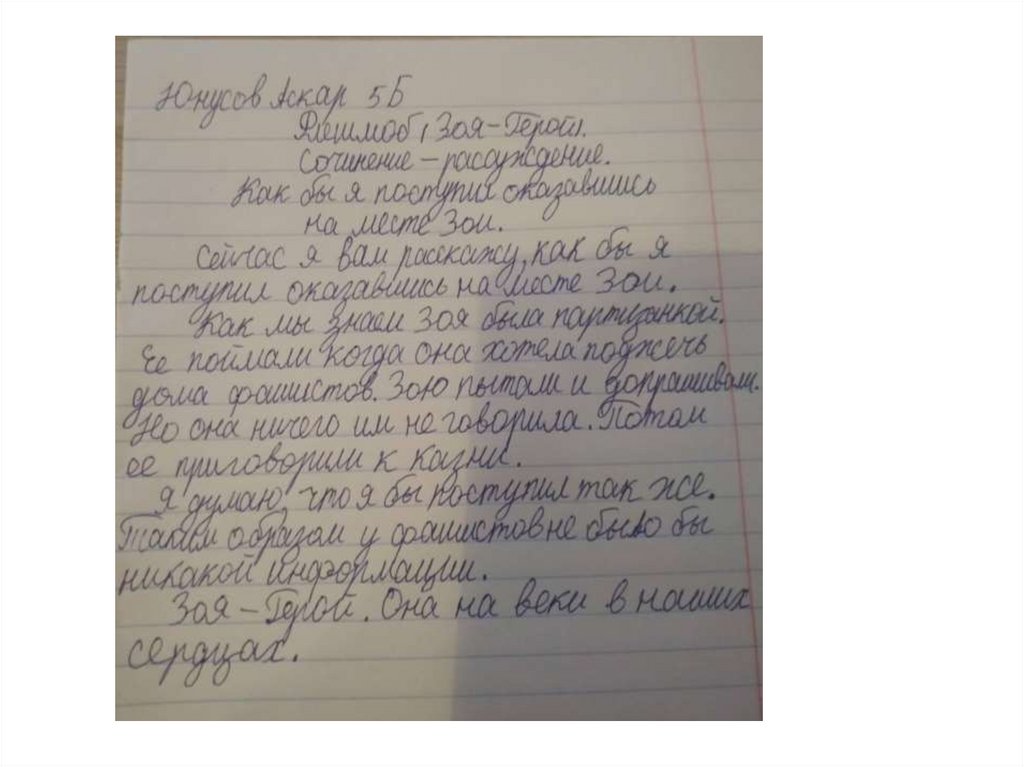 Юнусов Аскар 5Б
Флешмоб, Зоя-Герой.
Сочинение - рассуждение.
Как бы я поступил оказавшись
на месте Зои.
Сейчас я вам расскажу, как бы я
поступил оказавшись на месте Зои.
Как мы знаем Зоя была партизанкой.
Ее поймали когда она хотела поджечь
дома фашистов. Зою пытали и допрашивали.
Но она ничего им не говорила. Потом
ее приговорили к казни.
Я думаю, что я бы поступил так же.
Таким образом у фашистов не было бы
никакой информации.
Зоя - Герой. Она на веки в наших
сердцах.